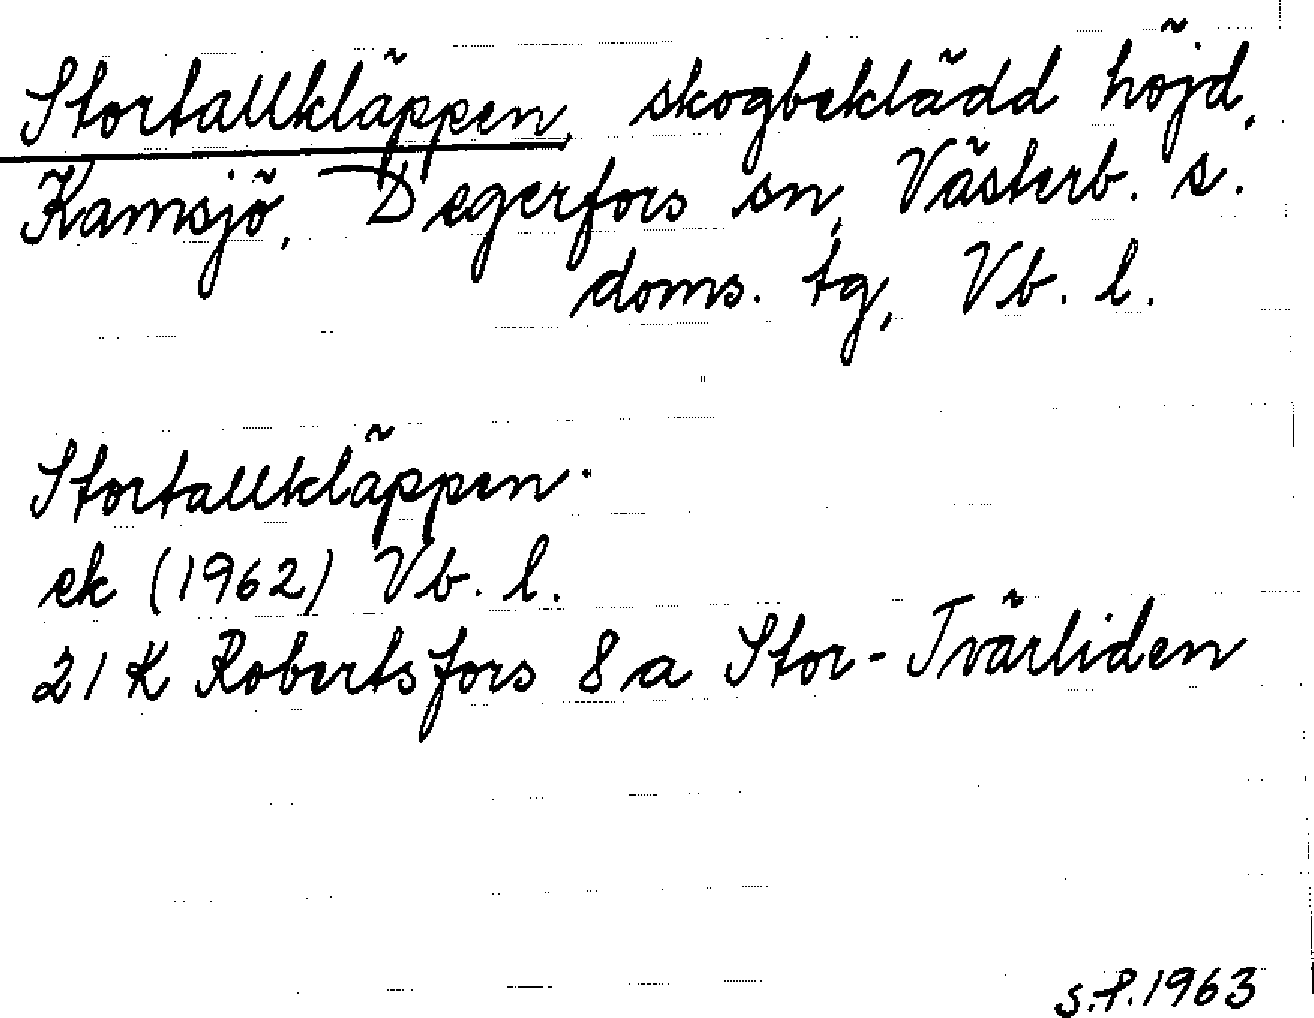 Stortallkläppen, skogbeklädd höjd,
Kamsjö, Degerfors sn, Västerb. s.
doms. tg, Vb. l.
Stortallkläppen
ek (1962) Vb. l.
21 K Robertsfors 8 a Stor-Tvärliden
s.f. 1963